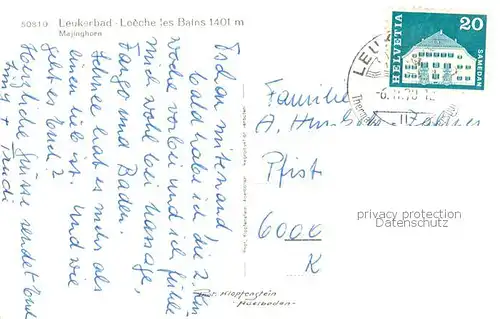 50810 Leukerbad - Loèche les Bains 1401 m
Majinghorn
Tschau mitenand!
Bald habe ich die 2. Kur
woche vorbei und ich fühle
mich wohl bei Massage,
Fango und Baden.
Schnee hat es mehr als
einem lieb ist. Und wie
geht es Euch?
Herzliche Grüsse sendet Euch
Trudi
HELVETIA
20
SAMEDAN
LEUK
Familie
A.
Pfist
6000
K
privacy protection
Datenschutz
Phot. Klopfenstein
Adelboden